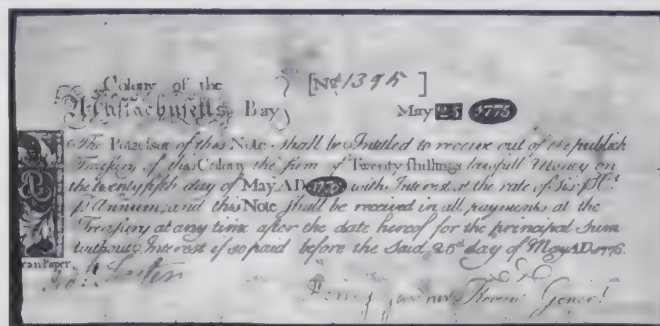 Colony of the
Massachusetts Bay [No 1395]
May 25 1775
The Possessor of this Note shall be Intitled to receive out of the publick
Treasury of this Colony the sum of Twenty Shillings lawfull Money on
the twenty fifth day of May AD 1776 with Interest at the rate of Six P Ct
P Annum, and this Note shall be received in all payments at the
Treasury at any time after the date hereof for the principal Sum
without Interest if so paid before the Said 25th day of May AD 1776.
Paper
Henry Receiv Genel